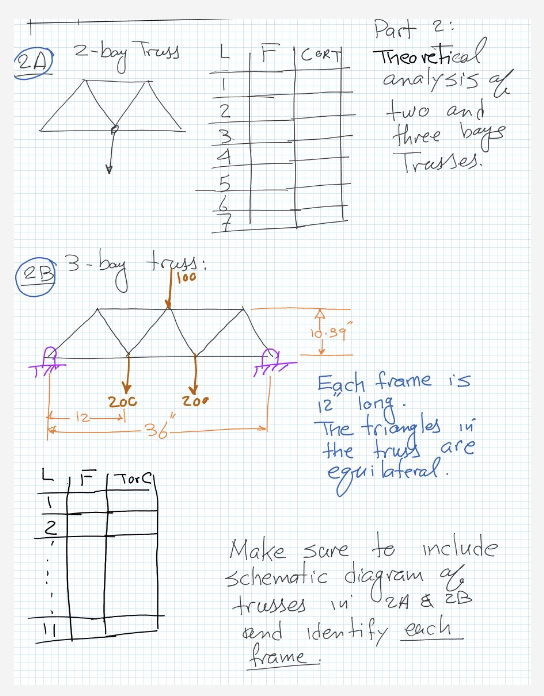 2A 2-bay Truss
L F C or T
1
2
3
4
5
6
7
Part 2:
Theoretical
analysis of
two and
three bays
Trusses.
2B 3-bay truss:
100
10.39"
200 200
12
36"
Each frame is
12" long.
The triangles in
the truss are
equilateral.
L F T or C
1
2
11
Make sure to include
schematic diagram of
trusses in 2A & 2B
and identify each
frame.